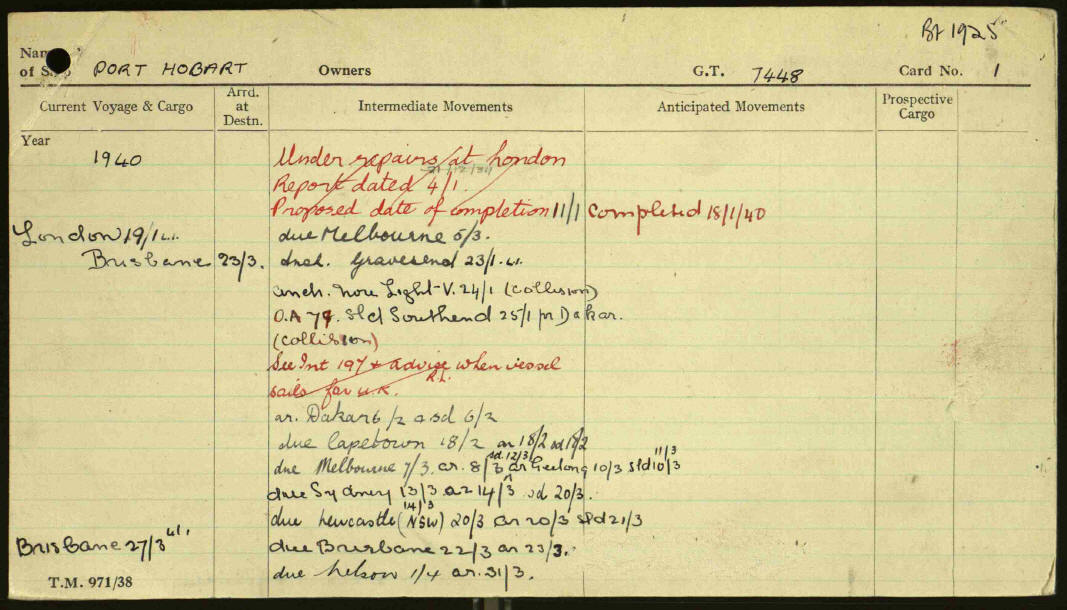 Bt 1925
Name of Ship PORT HOBART Owners G.T. 7448 Card No. 1
Current Voyage & Cargo Arrd. at Destn. Intermediate Movements Anticipated Movements Prospective Cargo
Year
1940 Under repairs at London
21/12/39
Report dated 4/1.
Proposed date of completion 11/1 Completed 18/1/40
London 19/1 due Melbourne 5/3.
Brisbane 23/3. Gravesend 23/1.
anch. Nore Light-V. 24/1 (collision)
O.A 79. sld Southend 25/1 pr Dakar.
(collision)
See Int 197 & advise when vessel
sails for U.K. R.L.
ar. Dakar 6/2 & sd 6/2
due Capetown 18/2 ar 18/2 sd 18/2
sd. 12/3 11/3
due Melbourne 7/3. ar. 8/3 ar Geelong 10/3 sld 10/3
due Sydney 13/3 ar 14/3 sd 20/3.
14/3
due Newcastle (NSW) 20/3 ar 20/3 sld 21/3
Brisbane 27/3 due Brisbane 22/3 ar 23/3.
due Nelson 1/4 ar. 31/3.
T.M. 971/38